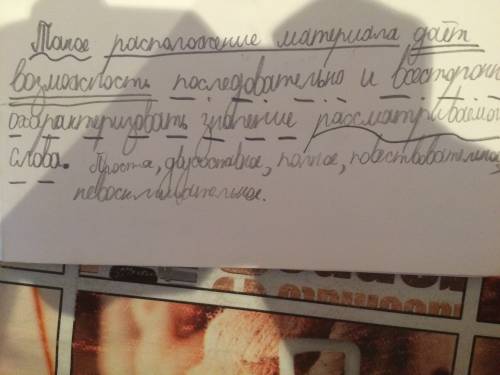 Такое расположение материала даёт
возможность последовательно и всесторонн
охарактеризовать значение рассматриваемог
слова. Проста, двусоставное, полное, повествовательное,
невосклицательное.